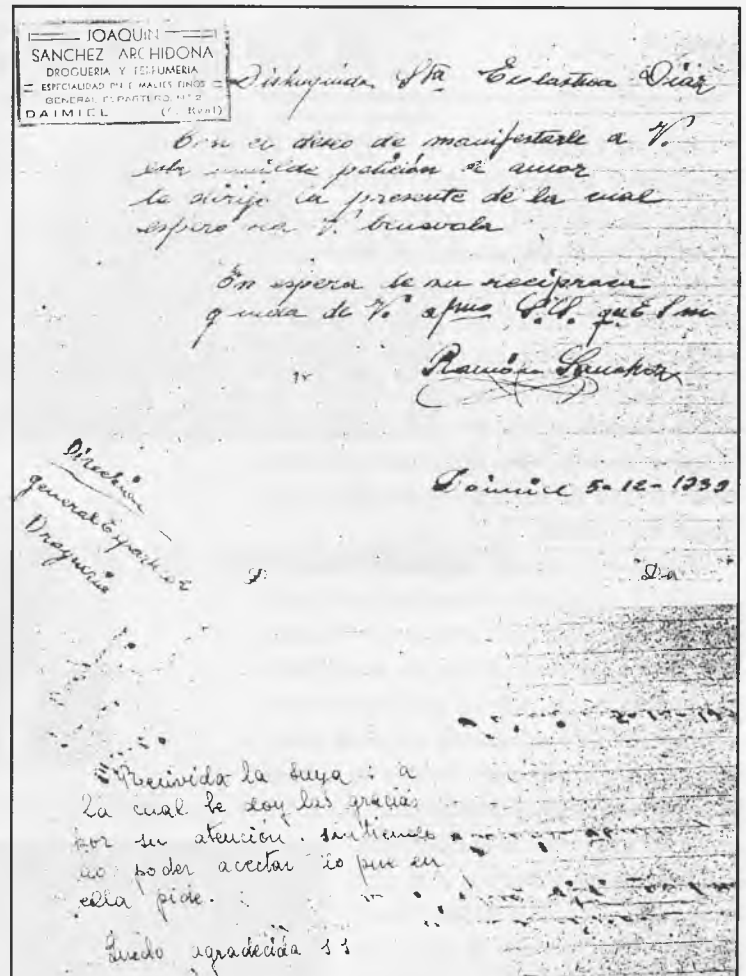 JOAQUIN
SANCHEZ ARCHIDONA
DROGUERIA Y PERFUMERIA
ESPECIALIDAD EN ESMALTES FINOS
GENERAL ESPARTERO, Nº 2
DAIMIEL (C. Real)
Distinguida Sta Escolastica Diaz
Con el deseo de manifestarle a V.
esta petición de amor
le dirijo la presente de la cual
espero sea V.
En espera de su reciproca
queda de V. afmo S.S. que E S m
Ramón Sanchez
Daimiel 5-12-1939
Dirección
general Espartero
Drogueria
Da
Recivida la suya : a
La cual le doy las gracias
por su atención. sintiendo
no poder acectar lo que en
ella pide.
Quedo agradecida s s